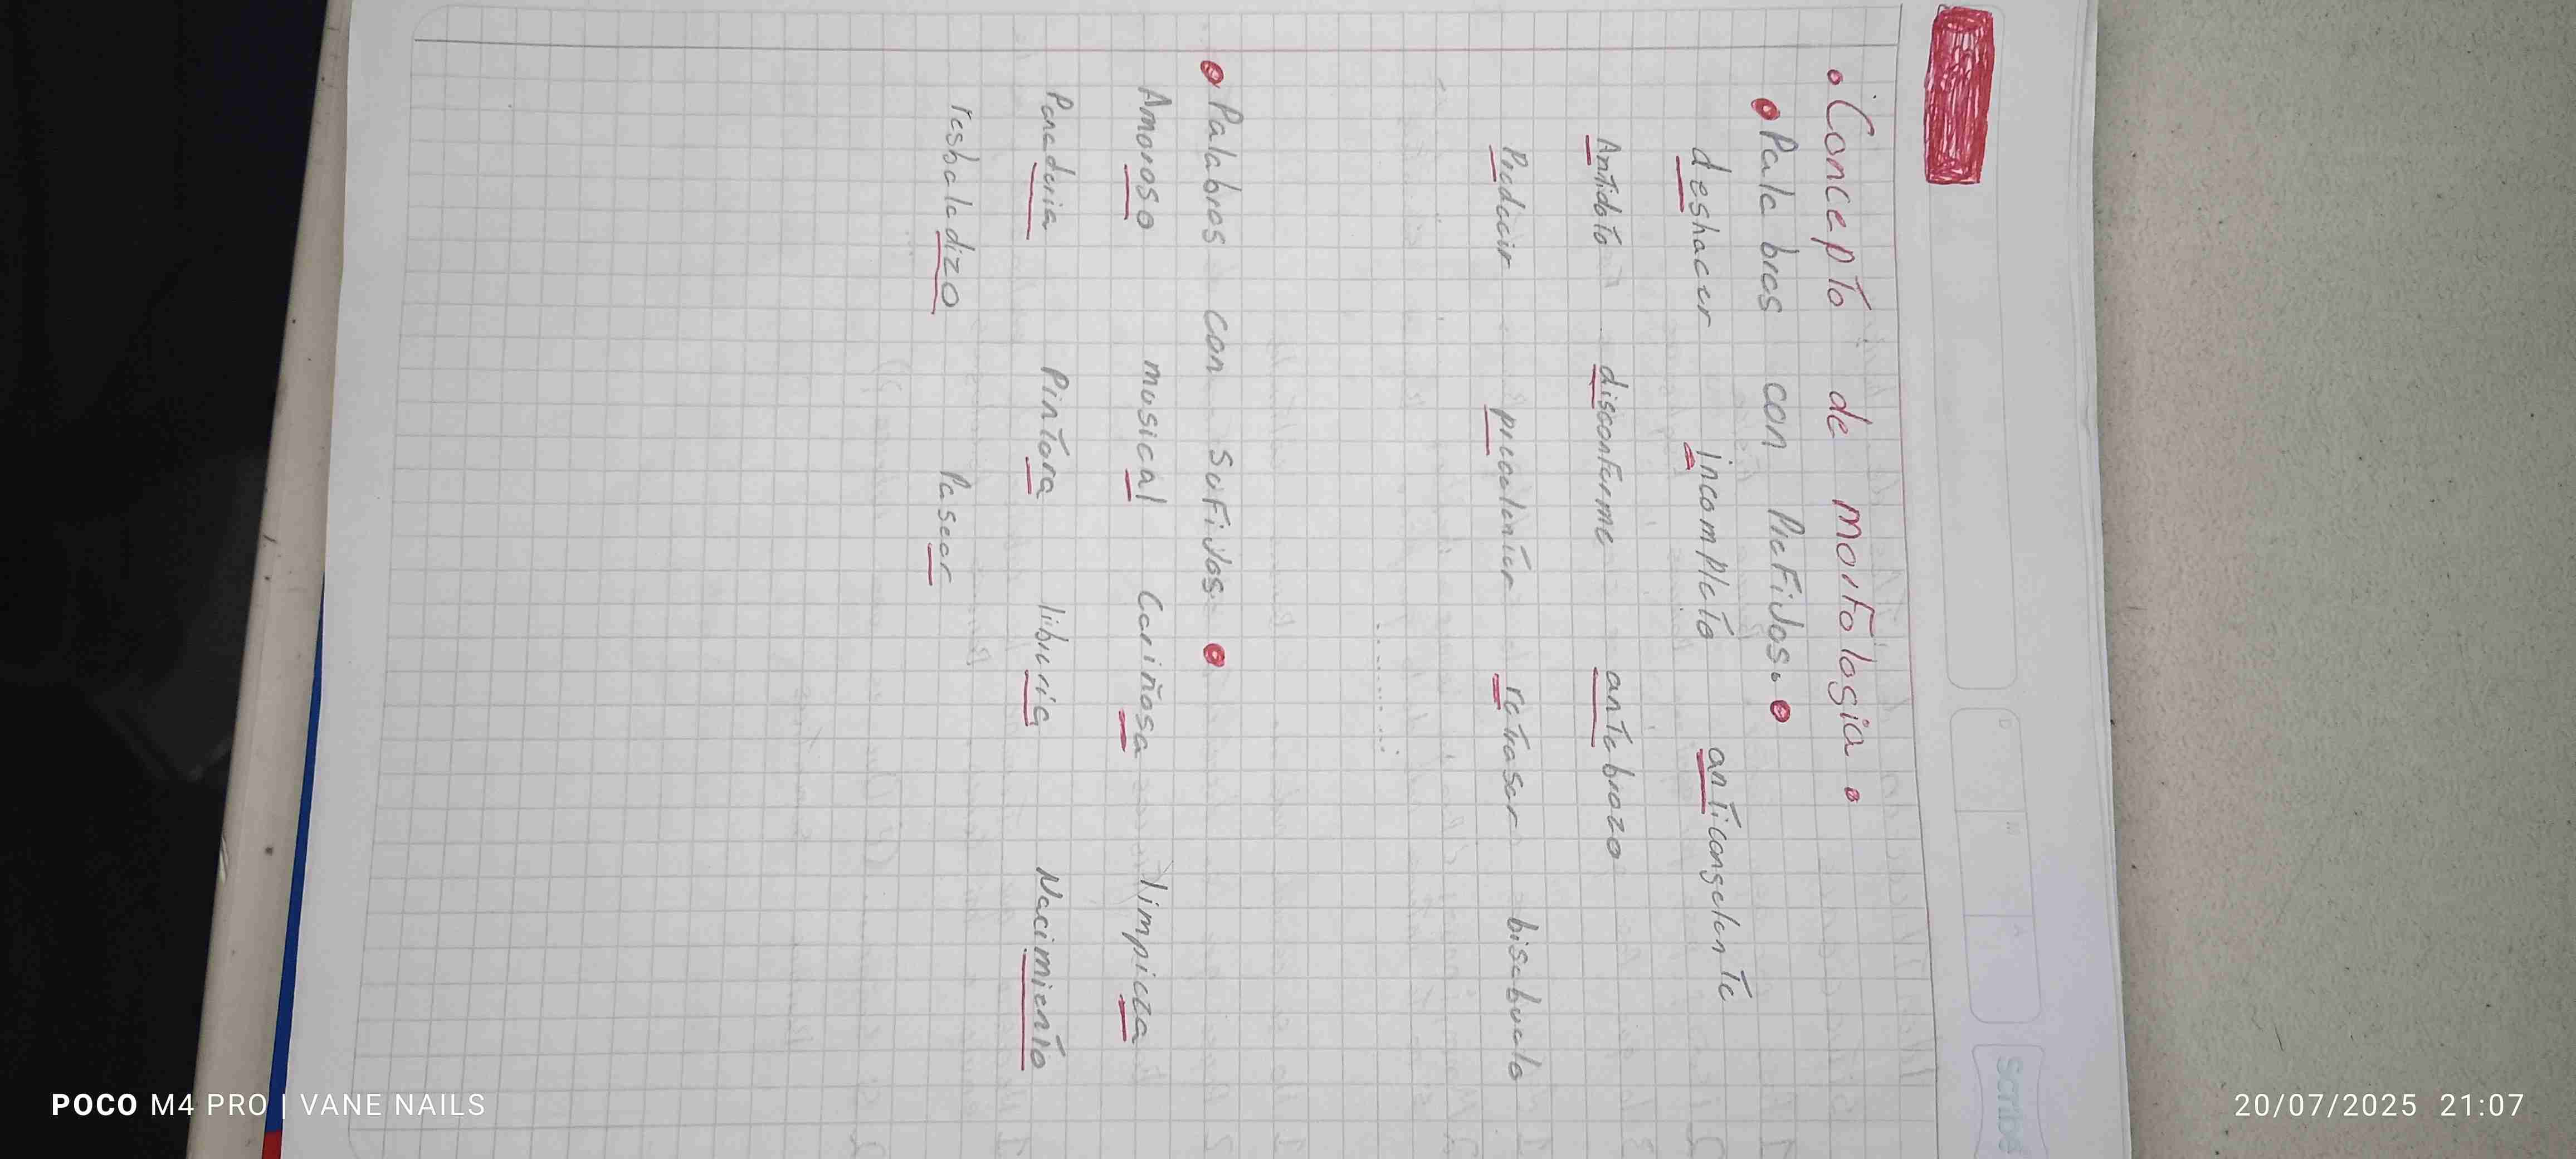 • Concepto de morfología •
• Palabras con Prefijos. •
deshacer incompleto anticongelante
Antidoto disconforme antebrazo
Predecir precalentar retrasar bisabuelo
• Palabras con Sufijos. •
Amoroso musical Cariñosa limpieza
Panaderia Pintora libreria Nacimiento
resbaladizo Pasear
Scribe
POCO M4 PRO | VANE NAILS
20/07/2025 21:07